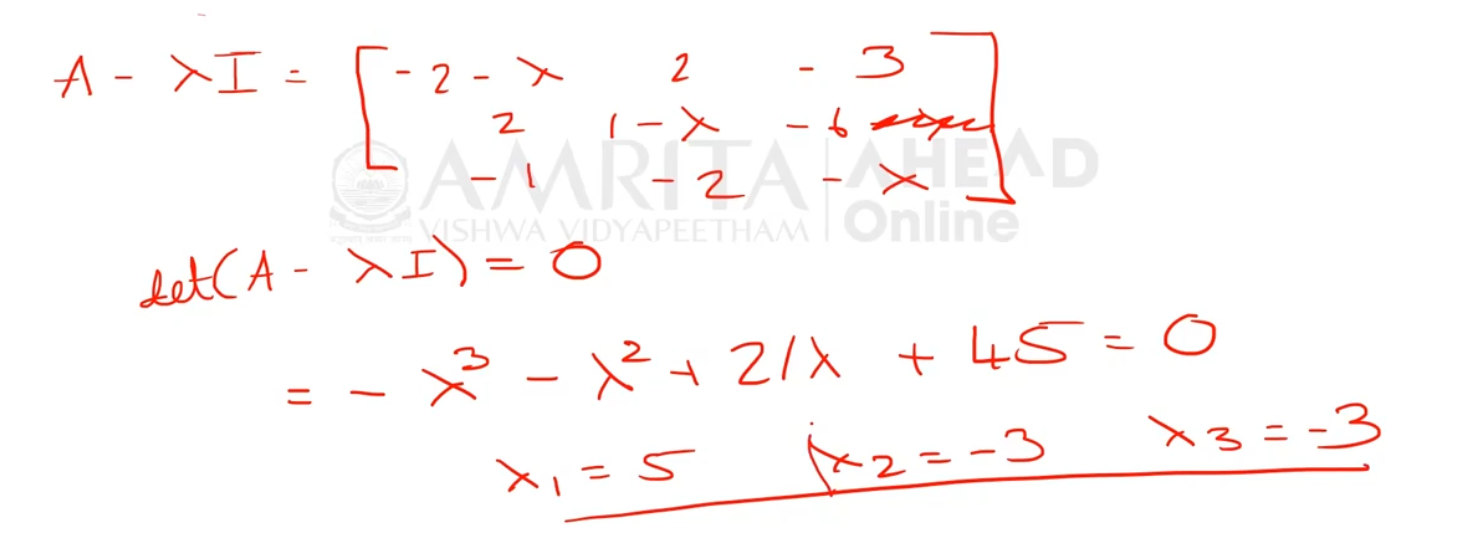 A - λI = [ -2-λ 2 -3
2 1-λ -6
-1 -2 -λ ]
AMRITA AHEAD
VISHWA VIDYAPEETHAM Online
det(A - λI) = 0
= -λ³ - λ² + 21λ + 45 = 0
λ₁ = 5 λ₂ = -3 λ₃ = -3